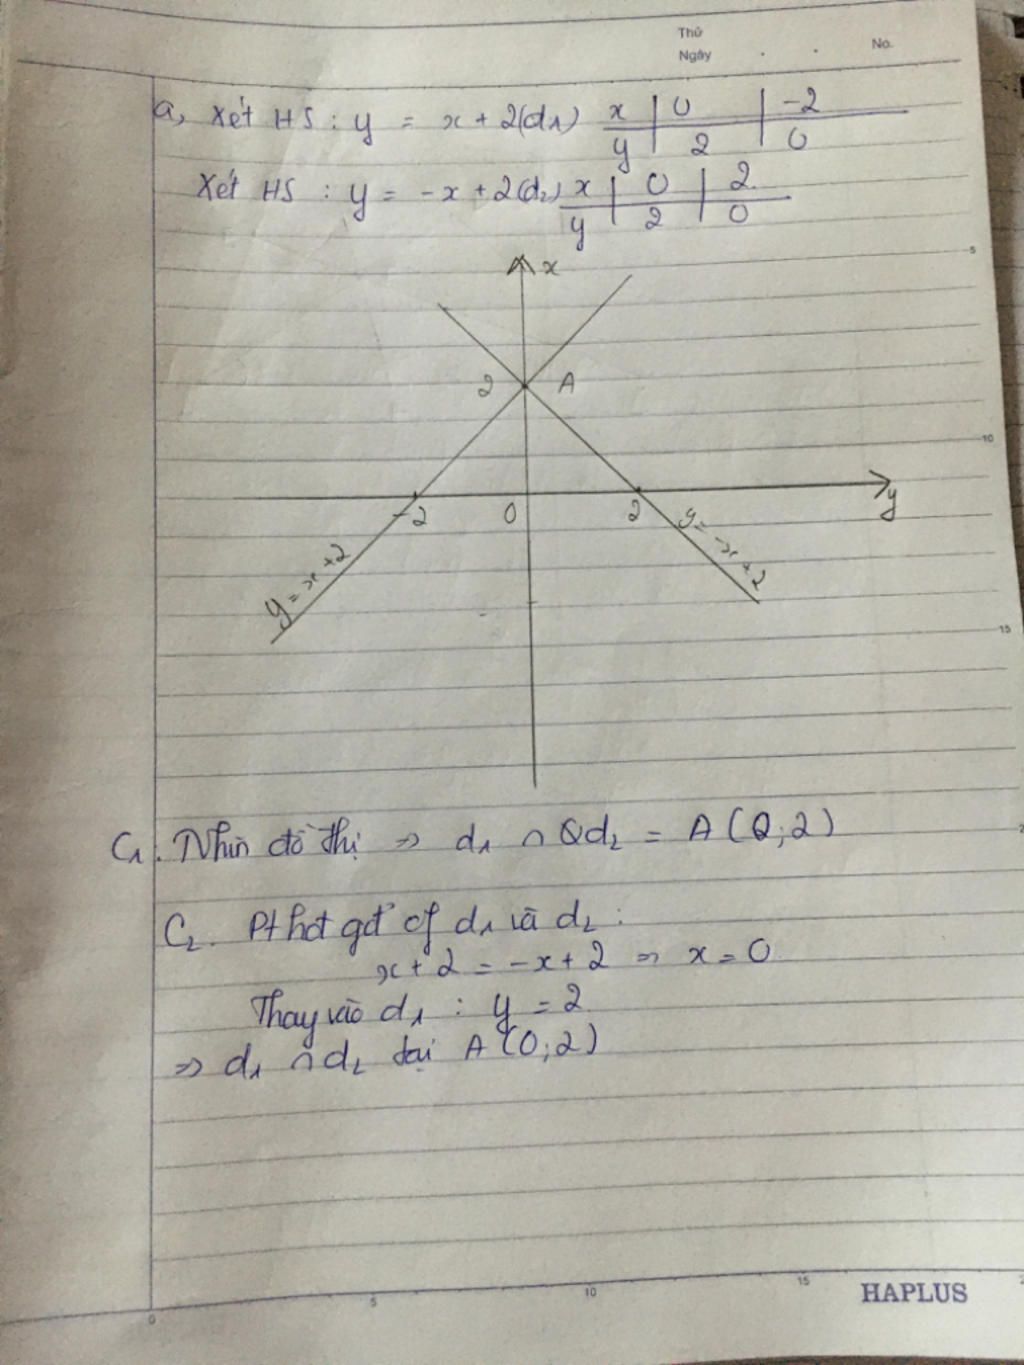 Thứ
Ngày
No.
a, Xét HS : y = x + 2 (d₁) x | 0 | -2
y | 2 | 0
Xét HS : y = -x + 2 (d₂) x | 0 | 2
y | 2 | 0
x
5
2 A
10
-2 0 2 y
y = x + 2 y = -x + 2
15
C₁. Nhìn đồ thị => d₁ ∩ d₂ = A (0; 2)
C₂. Pt hđ gđ of d₁ và d₂ :
x + 2 = -x + 2 => x = 0
Thay vào d₁ : y = 2
=> d₁ ∩ d₂ tại A (0; 2)
HAPLUS
0 5 10 15